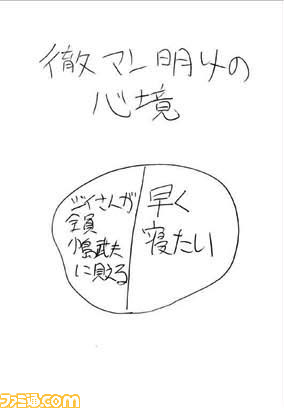 徹マン明けの
心境
ジイさんが
全員
小島武夫
に見える
早く
寝たい
ファミ通.com